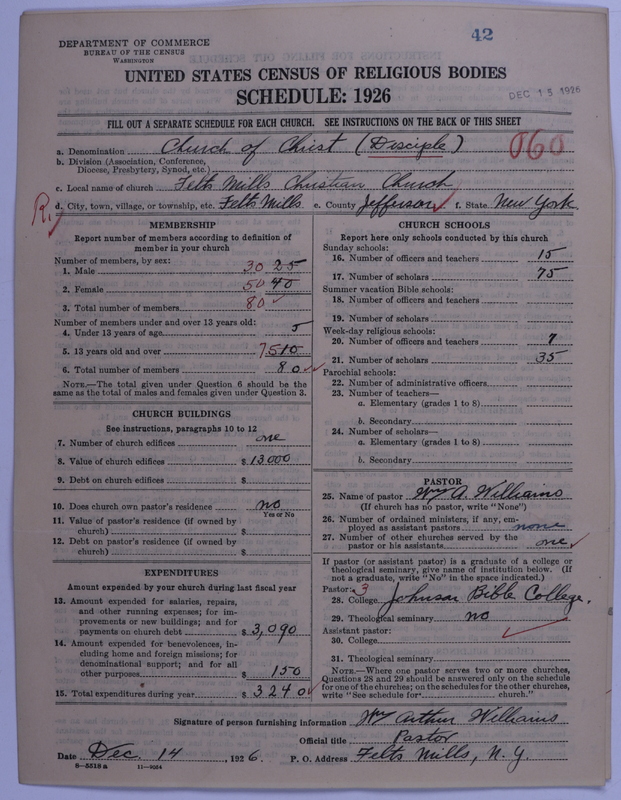 42
DEPARTMENT OF COMMERCE
BUREAU OF THE CENSUS
WASHINGTON
UNITED STATES CENSUS OF RELIGIOUS BODIES
SCHEDULE: 1926
DEC 15 1926
FILL OUT A SEPARATE SCHEDULE FOR EACH CHURCH. SEE INSTRUCTIONS ON THE BACK OF THIS SHEET
a. Denomination Church of Christ (Disciple) 060
b. Division (Association, Conference, Diocese, Presbytery, Synod, etc.)
c. Local name of church Felts Mills Christian Church
R. d. City, town, village, or township, etc. Felts Mills e. County Jefferson f. State New York
MEMBERSHIP
Report number of members according to definition of
member in your church
Number of members, by sex:
1. Male 30 25
2. Female 50 40
3. Total number of members 80
Number of members under and over 13 years old:
4. Under 13 years of age 5
5. 13 years old and over 75 10
6. Total number of members 80
NOTE.—The total given under Question 6 should be the
same as the total of males and females given under Question 3.
CHURCH BUILDINGS
See instructions, paragraphs 10 to 12
7. Number of church edifices one
8. Value of church edifices $13000
9. Debt on church edifices $
10. Does church own pastor's residence no
Yes or No
11. Value of pastor's residence (if owned by
church) $
12. Debt on pastor's residence (if owned by
church) $
EXPENDITURES
Amount expended by your church during last fiscal year
13. Amount expended for salaries, repairs,
and other running expenses; for im-
provements or new buildings; and for
payments on church debt $3,090
14. Amount expended for benevolences, in-
cluding home and foreign missions; for
denominational support; and for all
other purposes $ 150
15. Total expenditures during year $ 3240
CHURCH SCHOOLS
Report here only schools conducted by this church
Sunday schools:
16. Number of officers and teachers 15
17. Number of scholars 75
Summer vacation Bible schools:
18. Number of officers and teachers
19. Number of scholars
Week-day religious schools:
20. Number of officers and teachers 7
21. Number of scholars 35
Parochial schools:
22. Number of administrative officers
23. Number of teachers—
a. Elementary (grades 1 to 8)
b. Secondary
24. Number of scholars—
a. Elementary (grades 1 to 8)
b. Secondary
PASTOR
25. Name of pastor Wm A. Williams
(If church has no pastor, write "None")
26. Number of ordained ministers, if any, em-
ployed as assistant pastors none
27. Number of other churches served by the
pastor or his assistants one
If pastor (or assistant pastor) is a graduate of a college or
theological seminary, give name of institution below. (If
not a graduate, write "No" in the space indicated.)
Pastor: 3
28. College Johnson Bible College.
29. Theological seminary no
Assistant pastor:
30. College
31. Theological seminary
NOTE.—Where one pastor serves two or more churches,
Questions 28 and 29 should be answered only on the schedule
for one of the churches; on the schedules for the other churches,
write "See schedule for church."
Signature of person furnishing information Wm Arthur Williams
Official title Pastor
Date Dec. 14, 1926. P. O. Address Felts Mills, N.Y.
8—5518a 11—9054